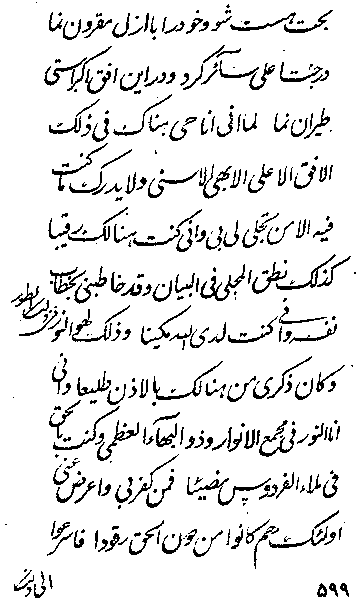 بحت هست شو و خود را با ازل مقرون نما
درجنتا علی سائر کرد و در این افق اکبر استی
طیران نما لما انی انا حی هناک فی ذلک
الافق الاعلی الابهی الاسنی ولا یدرک ما کنت
فیه الا من تجلی لی بی وانی کنت هنالک رقیبا
کذلک نطق المجلی فی البیان وقد خاطبنی بخطاب
نفسه وانی کنت لدی الله مکینا وذلک لهو النور
فوق الطور
وکان ذکری من هنالک بالاذن طلیعا وانی
انا النور فی مجمع الانوار وذو البهاء العظمی وکنت بالحق
فی ملاء الفردوس مضیئا فمن کفر بی واعرض عنی
اولئک هم کانوا من حون الحق رقودا فاسرعوا
الی
۵۹۹